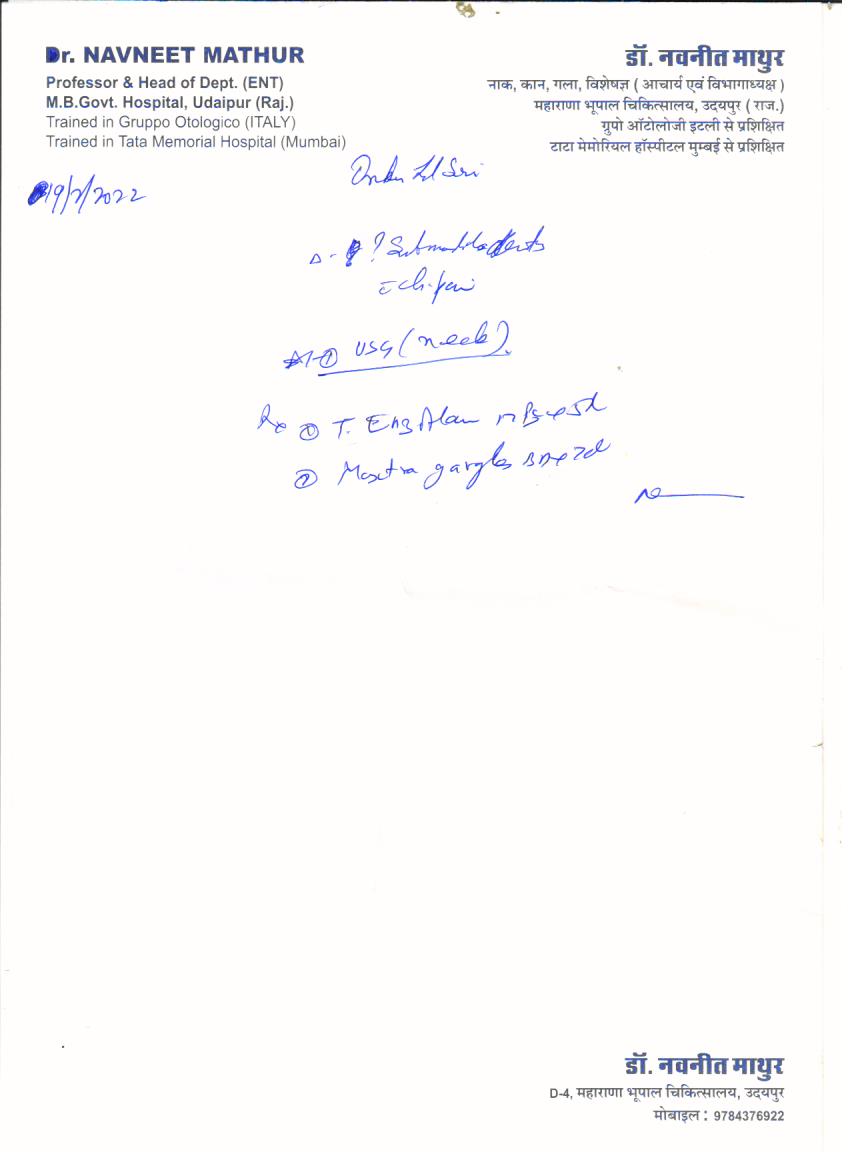 Dr. NAVNEET MATHUR
Professor & Head of Dept. (ENT)
M.B.Govt. Hospital, Udaipur (Raj.)
Trained in Gruppo Otologico (ITALY)
Trained in Tata Memorial Hospital (Mumbai)
डॉ. नवनीत माथुर
नाक, कान, गला, विशेषज्ञ ( आचार्य एवं विभागाध्यक्ष )
महाराणा भूपाल चिकित्सालय, उदयपुर ( राज.)
ग्रुपो ऑटोलोजी इटली से प्रशिक्षित
टाटा मेमोरियल हॉस्पीटल मुम्बई से प्रशिक्षित
/2022
① USG (neck)
Rx ① T.
② gargles
डॉ. नवनीत माथुर
D-4, महाराणा भूपाल चिकित्सालय, उदयपुर
मोबाइल : 9784376922